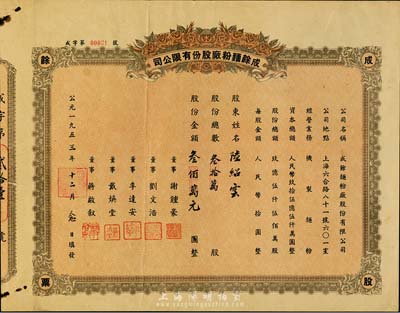 成字第 00021 號
成餘麵粉廠股份有限公司
成
餘
股
票
公司名稱 成餘麵粉廠股份有限公司
公司地點 上海六合路八十一號六〇一室
經營業務 機製麵粉
資本總額 人民幣玖拾伍億伍仟萬圓整
股份總額 玖億伍仟伍佰萬股
每股金額 人民幣拾圓整
股東姓名 陸紹雲
股份總數 叁拾萬 股
股份金額 叁佰萬元 圓整
董事 謝鍾豪
董事 劉文浩
董事 李達安
董事 戴煥堂
董事 蔣啟叙
公元一九五三年 十二月 日填發
上海陽明拍賣